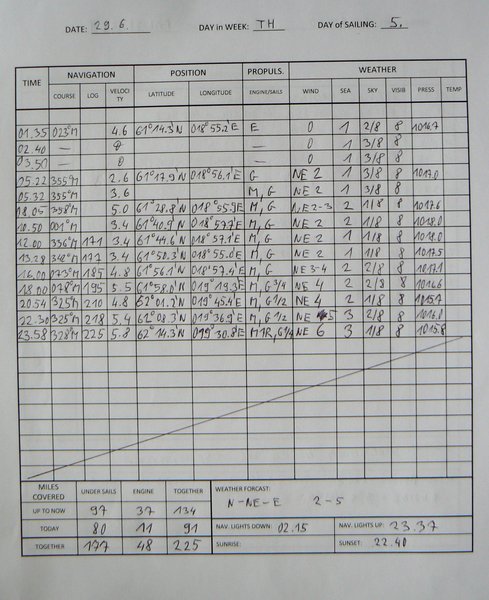 DATE: 29.6. DAY in WEEK: TH DAY of SAILING: 5.
TIME NAVIGATION POSITION PROPULS. WEATHER
COURSE LOG VELOCITY LATITUDE LONGITUDE ENGINE/SAILS WIND SEA SKY VISIB PRESS TEMP
01.35 023°M 4.6 61°14.3'N 018°55.2'E E 0 1 2/8 8 1016.7
02.40 — 0 — 0 1 3/8 8
03.50 — 0 — 0 1 3/8 8
05.22 355°M 2.6 61°17.9'N 018°56.1'E G NE 2 1 3/8 8 1017.0
05.32 355°M 3.6 M, G NE 2 1 3/8 8
358°M 5.0 61°28.8'N 018°55.9'E M, G NE 2-3 2 1/8 8 1017.6
10.50 001°M 3.4 61°40.9'N 018°57.7'E M, G NE 2 2 1/8 8 1018.0
12.00 356°M 171 3.4 61°44.6'N 018°57.1'E M, G NE 2 1 1/8 8 1018.0
13.28 342°M 177 3.4 61°50.3'N 018°55.0'E M, G NE 2 1 1/8 8 1017.5
16.00 073°M 185 4.8 61°56.1'N 018°57.4'E M, G NE 3-4 2 2/8 8 1017.1
18.00 078°M 195 5.5 61°58.0'N 019°19.3'E M, G 3/4 NE 4 2 2/8 8 1016.6
20.54 325°M 210 4.8 62°01.7'N 019°45.4'E M, G 1/2 NE 4 2 1/8 8 1015.7
22.30 325°M 218 5.4 62°08.3'N 019°36.9'E M, G 1/2 NE 5 3 2/8 8 1016.0
23.58 328°M 225 5.8 62°14.3'N 019°30.8'E NE 6 3 1/8 8 1015.8
MILES COVERED UNDER SAILS ENGINE TOGETHER WEATHER FORCAST:
UP TO NOW 97 37 134 N-NE-E 2-5
TODAY 80 11 91 NAV. LIGHTS DOWN: 02.15 NAV. LIGHTS UP: 23.37
TOGETHER 177 48 225 SUNRISE: SUNSET: 22.40